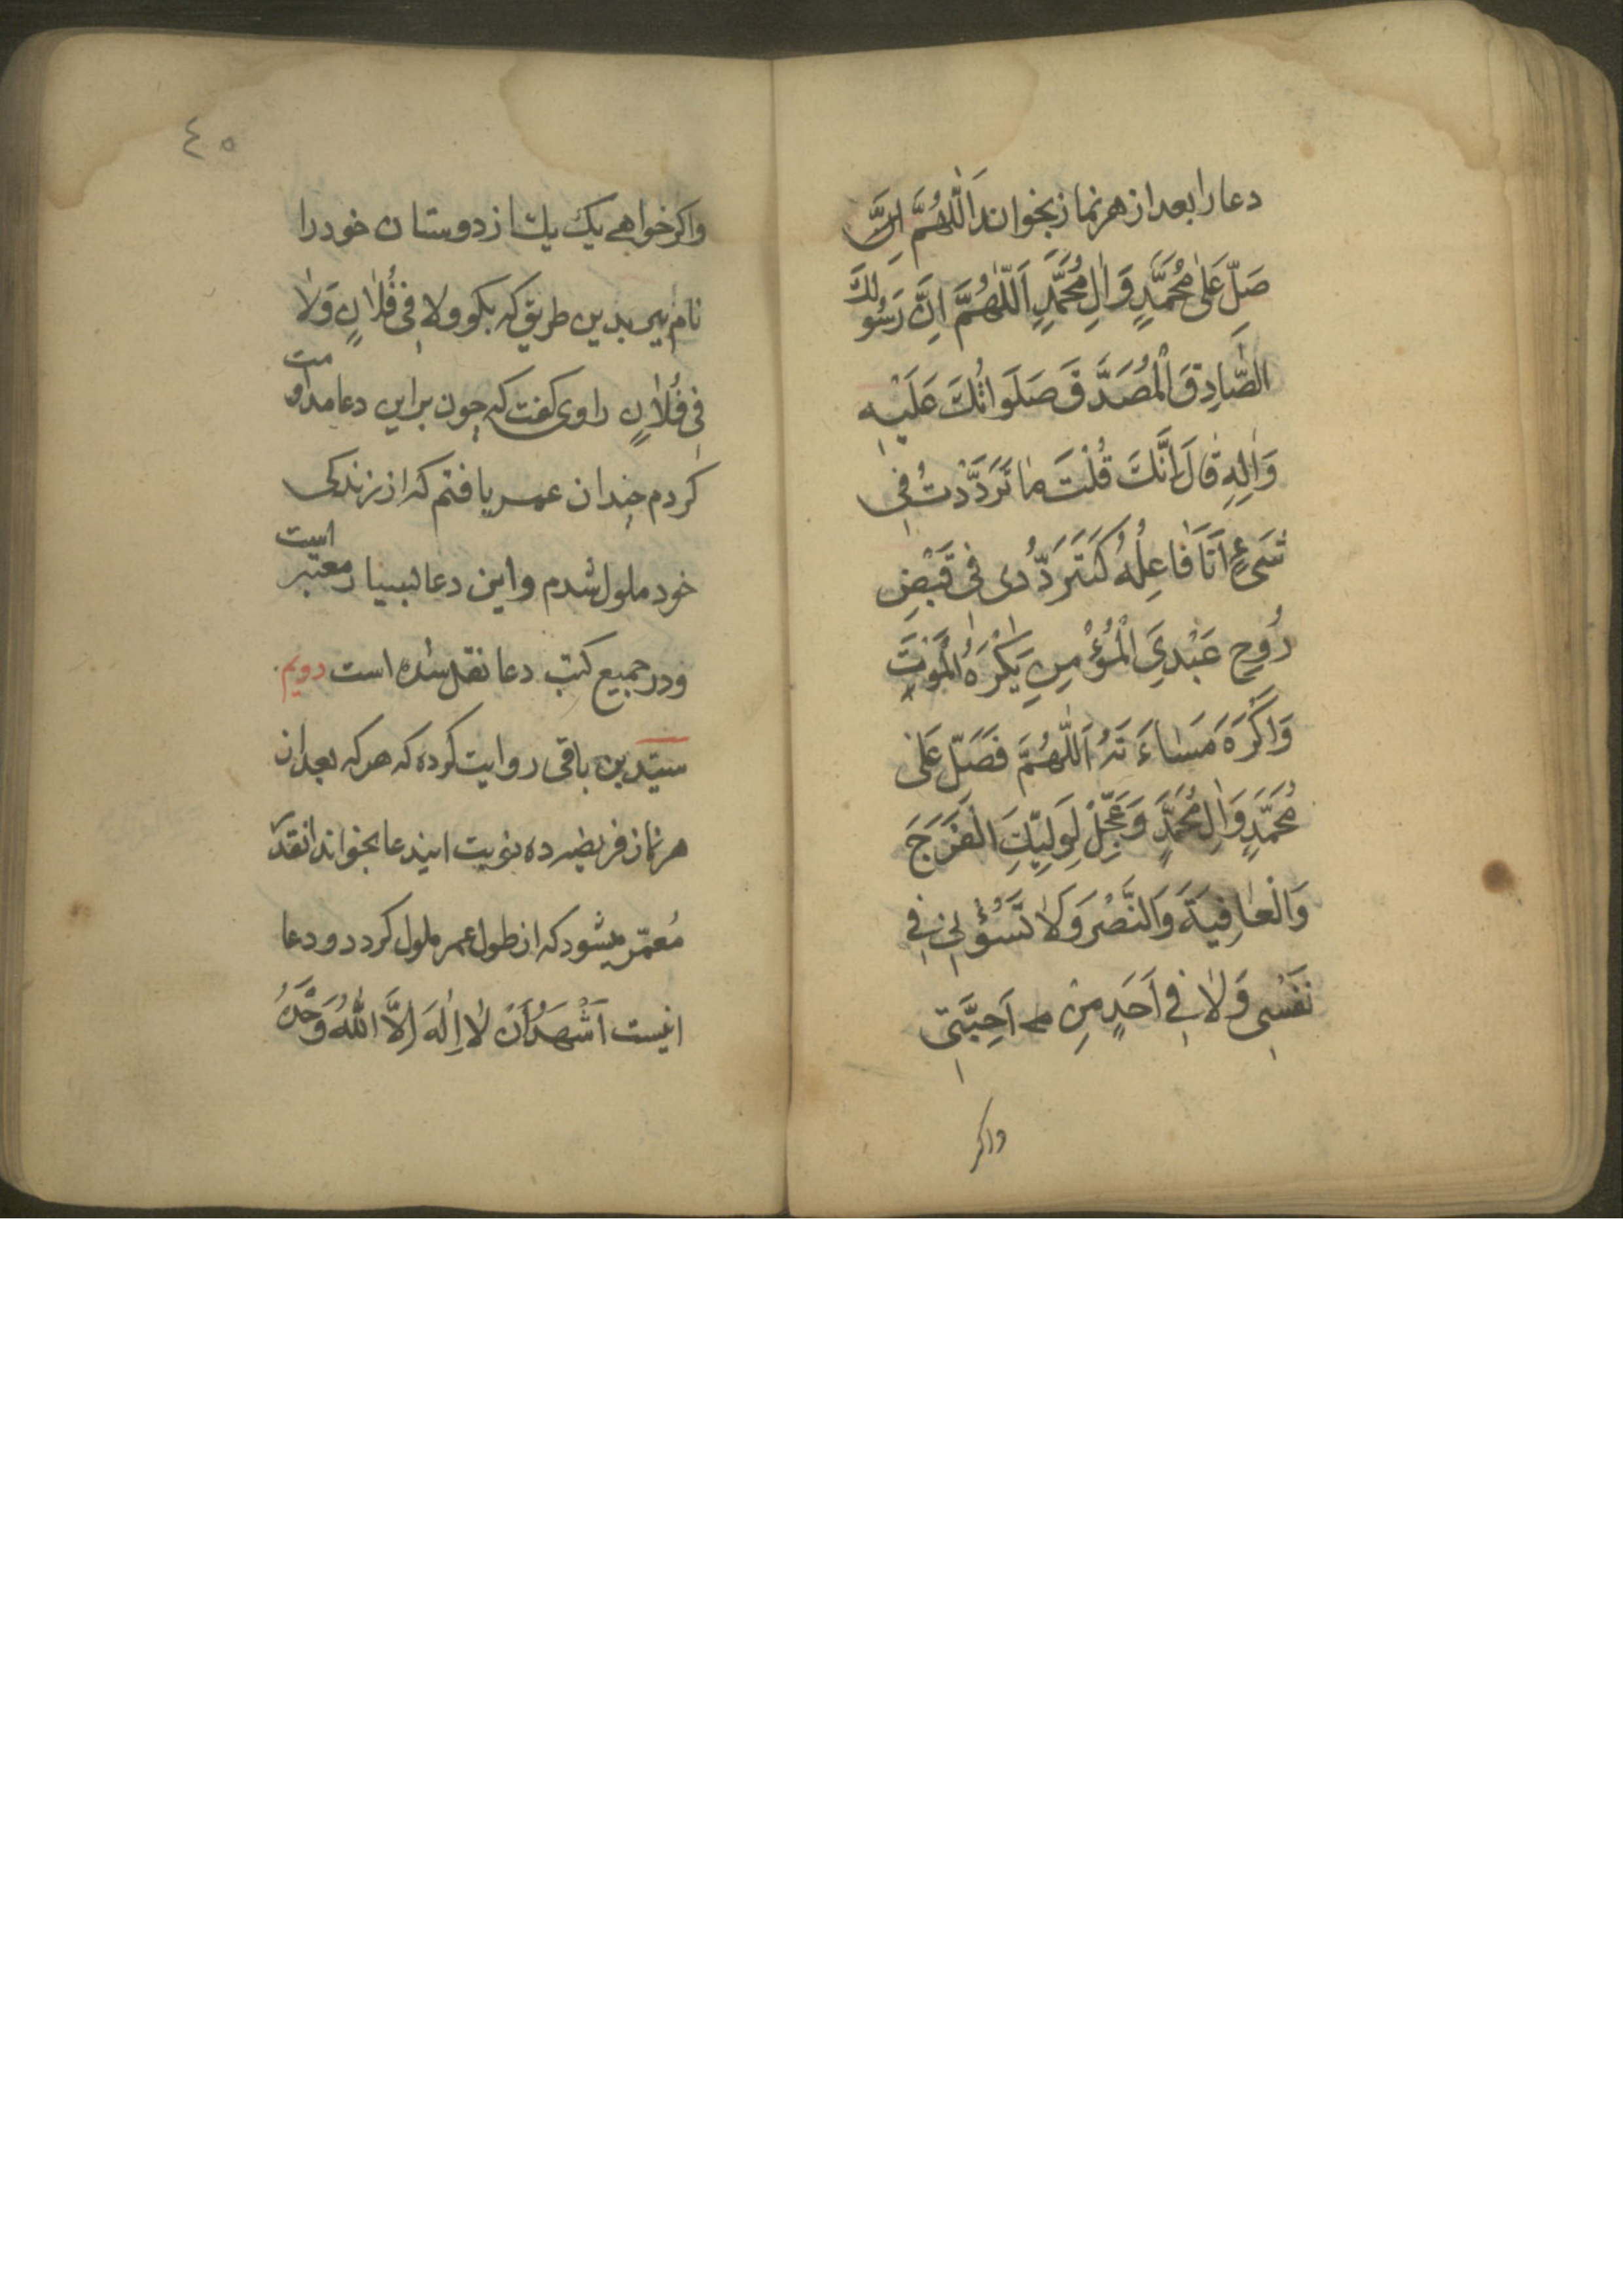 دعا را بعد از هر نماز بخواند اَللّٰهُمَّ اِنَّ
صَلِّ عَلیٰ مُحَمَّدٍ وَاٰلِ مُحَمَّدٍ اَللّٰهُمَّ اِنَّ رَسُولَكَ
الصّٰادِقَ الْمُصَدَّقَ صَلَوٰاتُكَ عَلَيْهِ
وَاٰلِهِ قٰالَ اِنَّكَ قُلْتَ مٰا تَرَدَّدْتُ فِی
شَیْءٍ اَنَا فٰاعِلُهُ كَتَرَدُّدِی فِی قَبْضِ
رُوحِ عَبْدِیَ الْمُؤْمِنِ يَكْرَهُ الْمَوْتَ
وَاَكْرَهُ مَسٰاءَتَهُ اَللّٰهُمَّ فَصَلِّ عَلیٰ
مُحَمَّدٍ وَاٰلِ مُحَمَّدٍ وَعَجِّلْ لِوَلِيِّكَ الْفَرَجَ
وَالْعٰافِيَةَ وَالنَّصْرَ وَلاٰ تَسُؤْنِی فِی
نَفْسِی وَلاٰ فِی اَحَدٍ مِنْ اَحِبَّتِی
واكر
٤٥
واكر خواهے یك یك از دوستان خود را
نام بر بدین طریق كه بكو ولا فِی فُلاٰنٍ وَلاٰ
فِی فُلاٰنٍ راوی كفت كه چون بر این دعا مداومت
كردم چندان عمر یافتم كه از زندكی
خود ملول شدم و این دعا بسیار معتبر است
ودر جمیع كتب دعا نقل شده است دویم
سیّد بن باقی روایت كرده كه هر كه بعد از
هر نماز فریضه ده نوبت ایندعا بخواند انقدر
مُعمّر میشود كه از طول عمر ملول كردد و دعا
اینست اَشْهَدُ اَنْ لاٰ اِلٰهَ اِلاَّ اللّٰهُ وَحْدَهُ